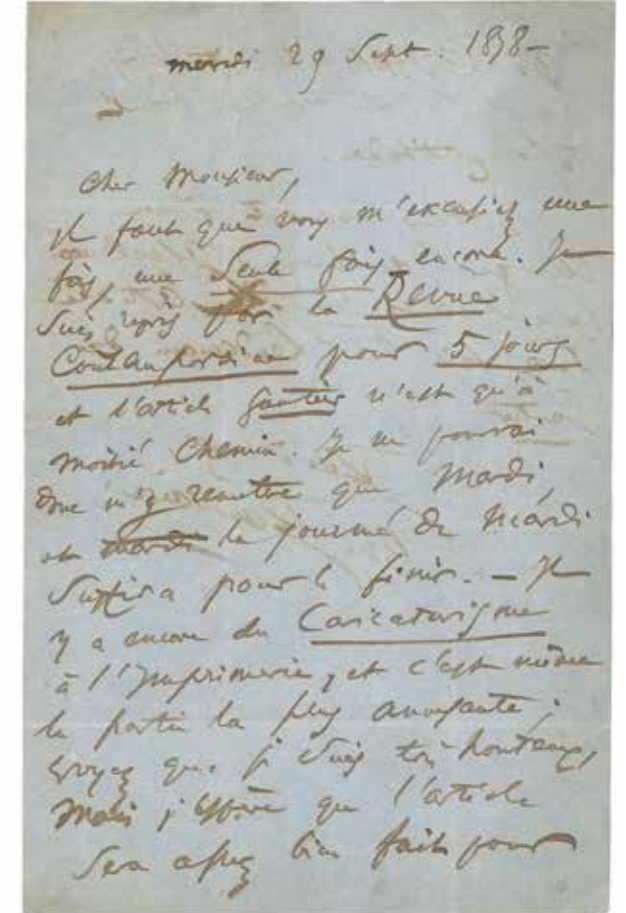 mercredi 29 Sept. 1858 –
Cher Monsieur,
il faut que vous m'excusiez une
fois, une seule fois encore. Je
suis pris par la Revue
Contemporaine pour 5 jours
et l'article Gautier n'est qu'à
moitié chemin. Je ne pourrai
donc m'y remettre que Mardi,
et mardi la journée de Mardi
suffira pour le finir. – Il
y a encore du Caricaturisme
à l'Imprimerie, et c'est même
la partie la plus amusante ;
croyez que je suis très honteux,
Mais j'espère que l'article
sera assez bien fait pour